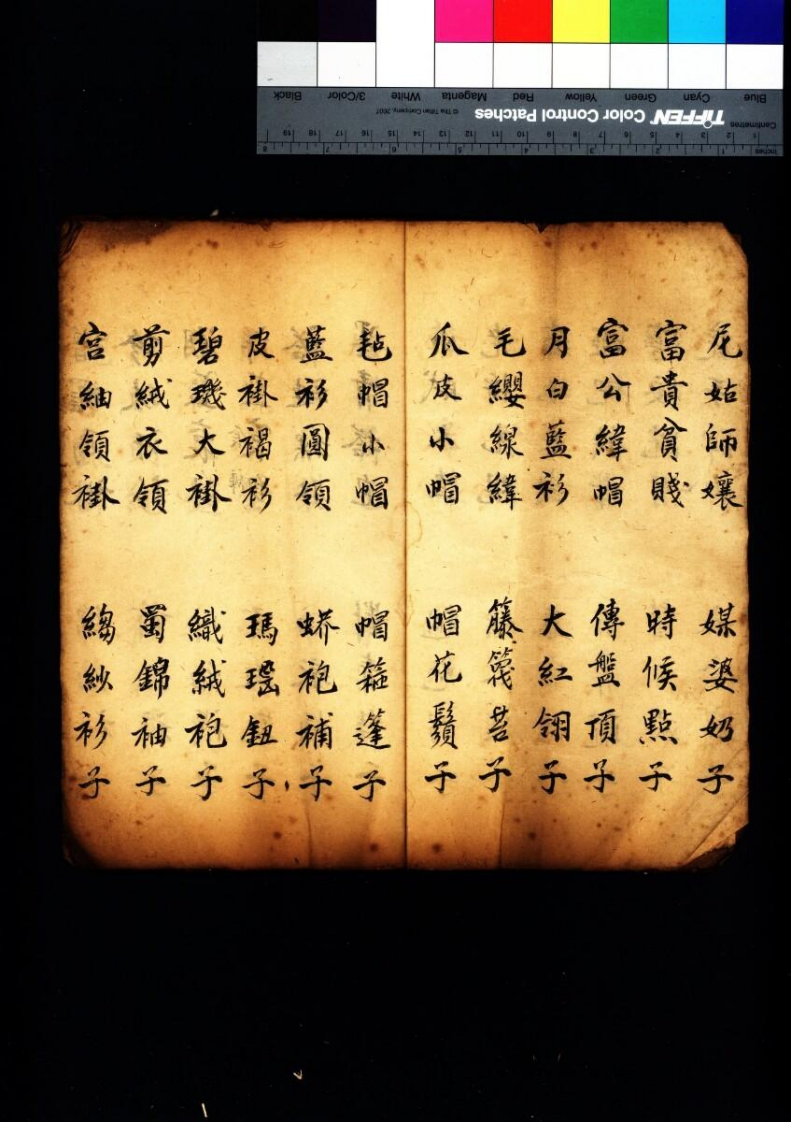 Blue Cyan Green Yellow Red Magenta White 3/Color Black
TIFFEN Color Control Patches © The Tiffen Company, 2007
Centimetres
Inches
尼姑師孃 媒婆奶子
富貴貧賤 時候點子
富公緯帽 傳盤頂子
月白藍衫 大紅翎子
毛纓線緯 籐篾苔子
瓜皮小帽 帽花鬚子
毡帽小帽 帽箍篷子
藍衫圓領 蟒袍補子
皮褂褐衫 瑪瑤鈕子
碧璣大褂 織絨袍子
剪絨衣領 蜀錦袖子
宮紬領褂 縐紗衫子